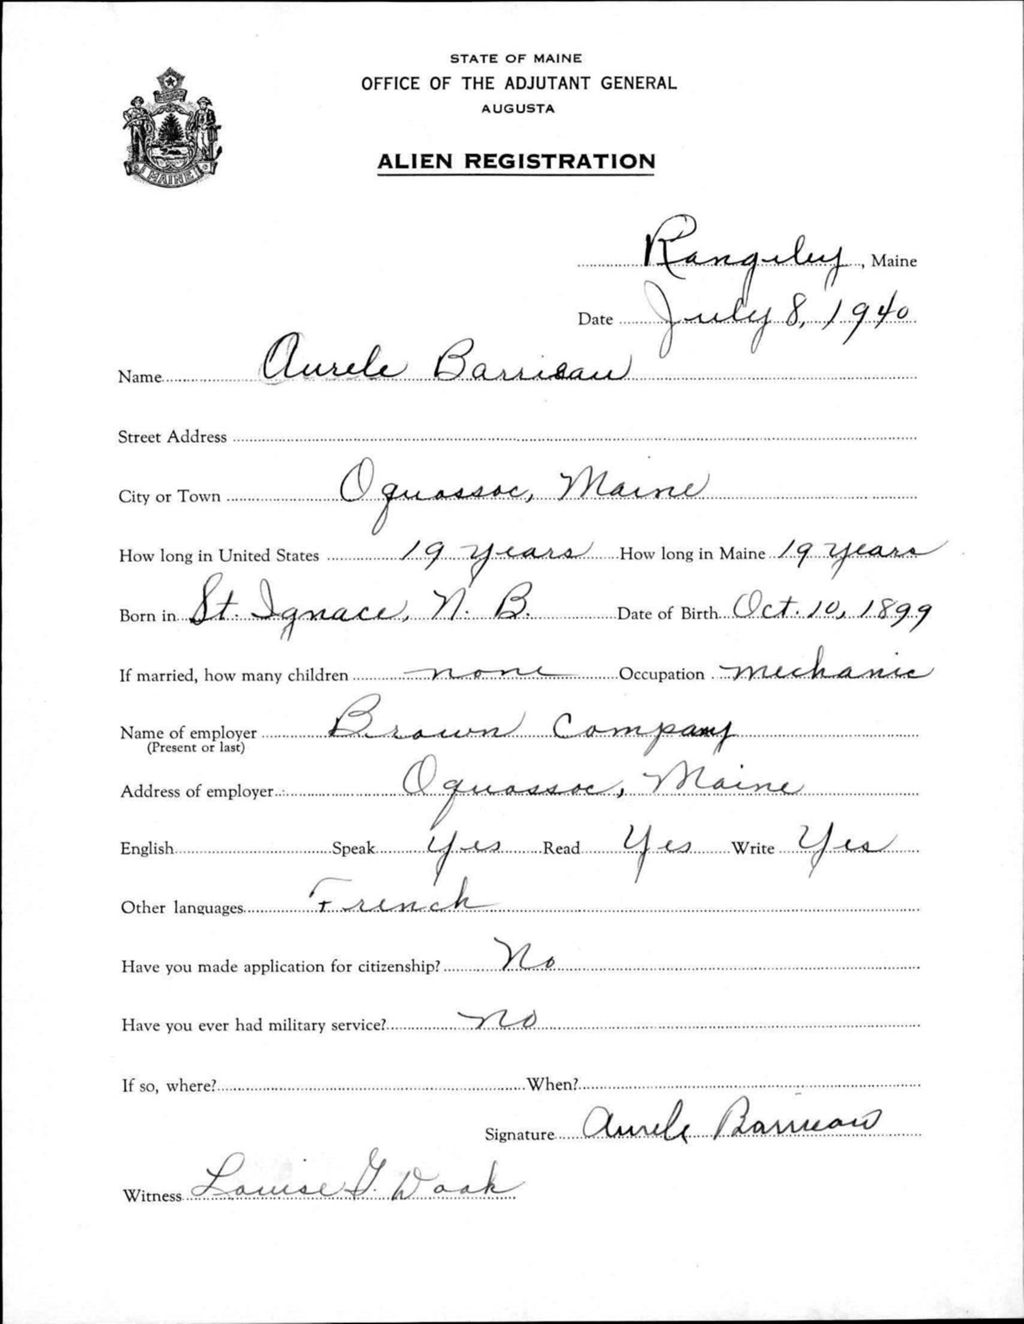 STATE OF MAINE
OFFICE OF THE ADJUTANT GENERAL
AUGUSTA
ALIEN REGISTRATION
MAINE
Rangeley, Maine
Date July 8, 1940
Name Aurele Barrieau
Street Address
City or Town Oquossoc, Maine
How long in United States 19 years How long in Maine 19 years
Born in St. Ignace, N. B. Date of Birth Oct. 10, 1899
If married, how many children none Occupation mechanic
Name of employer Brown Company
(Present or last)
Address of employer Oquossoc, Maine
English Speak yes Read Yes Write Yes
Other languages French
Have you made application for citizenship? No
Have you ever had military service? no
If so, where? When?
Signature Aurele Barrieau
Witness Louise G.